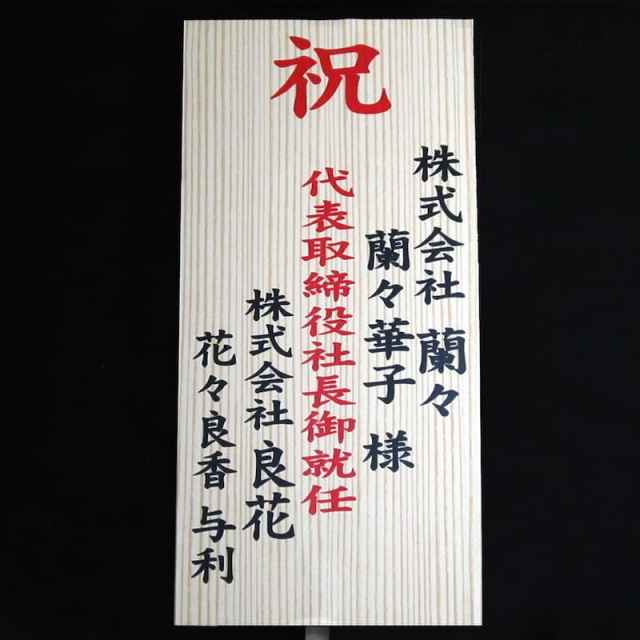 祝
株式会社 蘭々
蘭々華子 様
代表取締役社長御就任
株式会社 良花
花々良香 与利